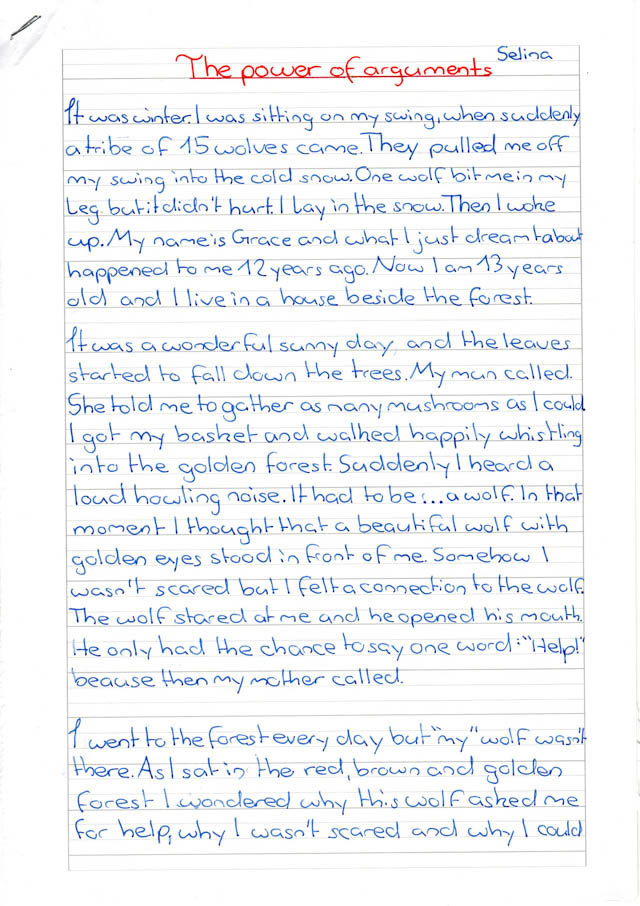 Selina
The power of arguments
It was winter. I was sitting on my swing, when suddenly
a tribe of 15 wolves came. They pulled me off
my swing into the cold snow. One wolf bit me in my
leg. but it didn't hurt. I lay in the snow. Then I woke
up. My name is Grace and what I just dreamt about
happened to me 12 years ago. Now I am 13 years
old and I live in a house beside the forest.
It was a wonderful sunny day, and the leaves
started to fall down the trees. My mum called.
She told me to gather as many mushrooms as I could
I got my basket and walked happily whistling
into the golden forest. Suddenly I heard a
loud howling noise. It had to be:... a wolf. In that
moment I thought that a beautiful wolf with
golden eyes stood in front of me. Somehow I
wasn't scared but I felt a connection to the wolf.
The wolf stared at me and he opened his mouth.
He only had the chance to say one word: "Help!"
beause then my mother called.
I went to the forest every day but "my" wolf wasn't
there. As I sat in the red, brown and golden
forest I wondered why this wolf asked me
for help, why I wasn't scared and why I could